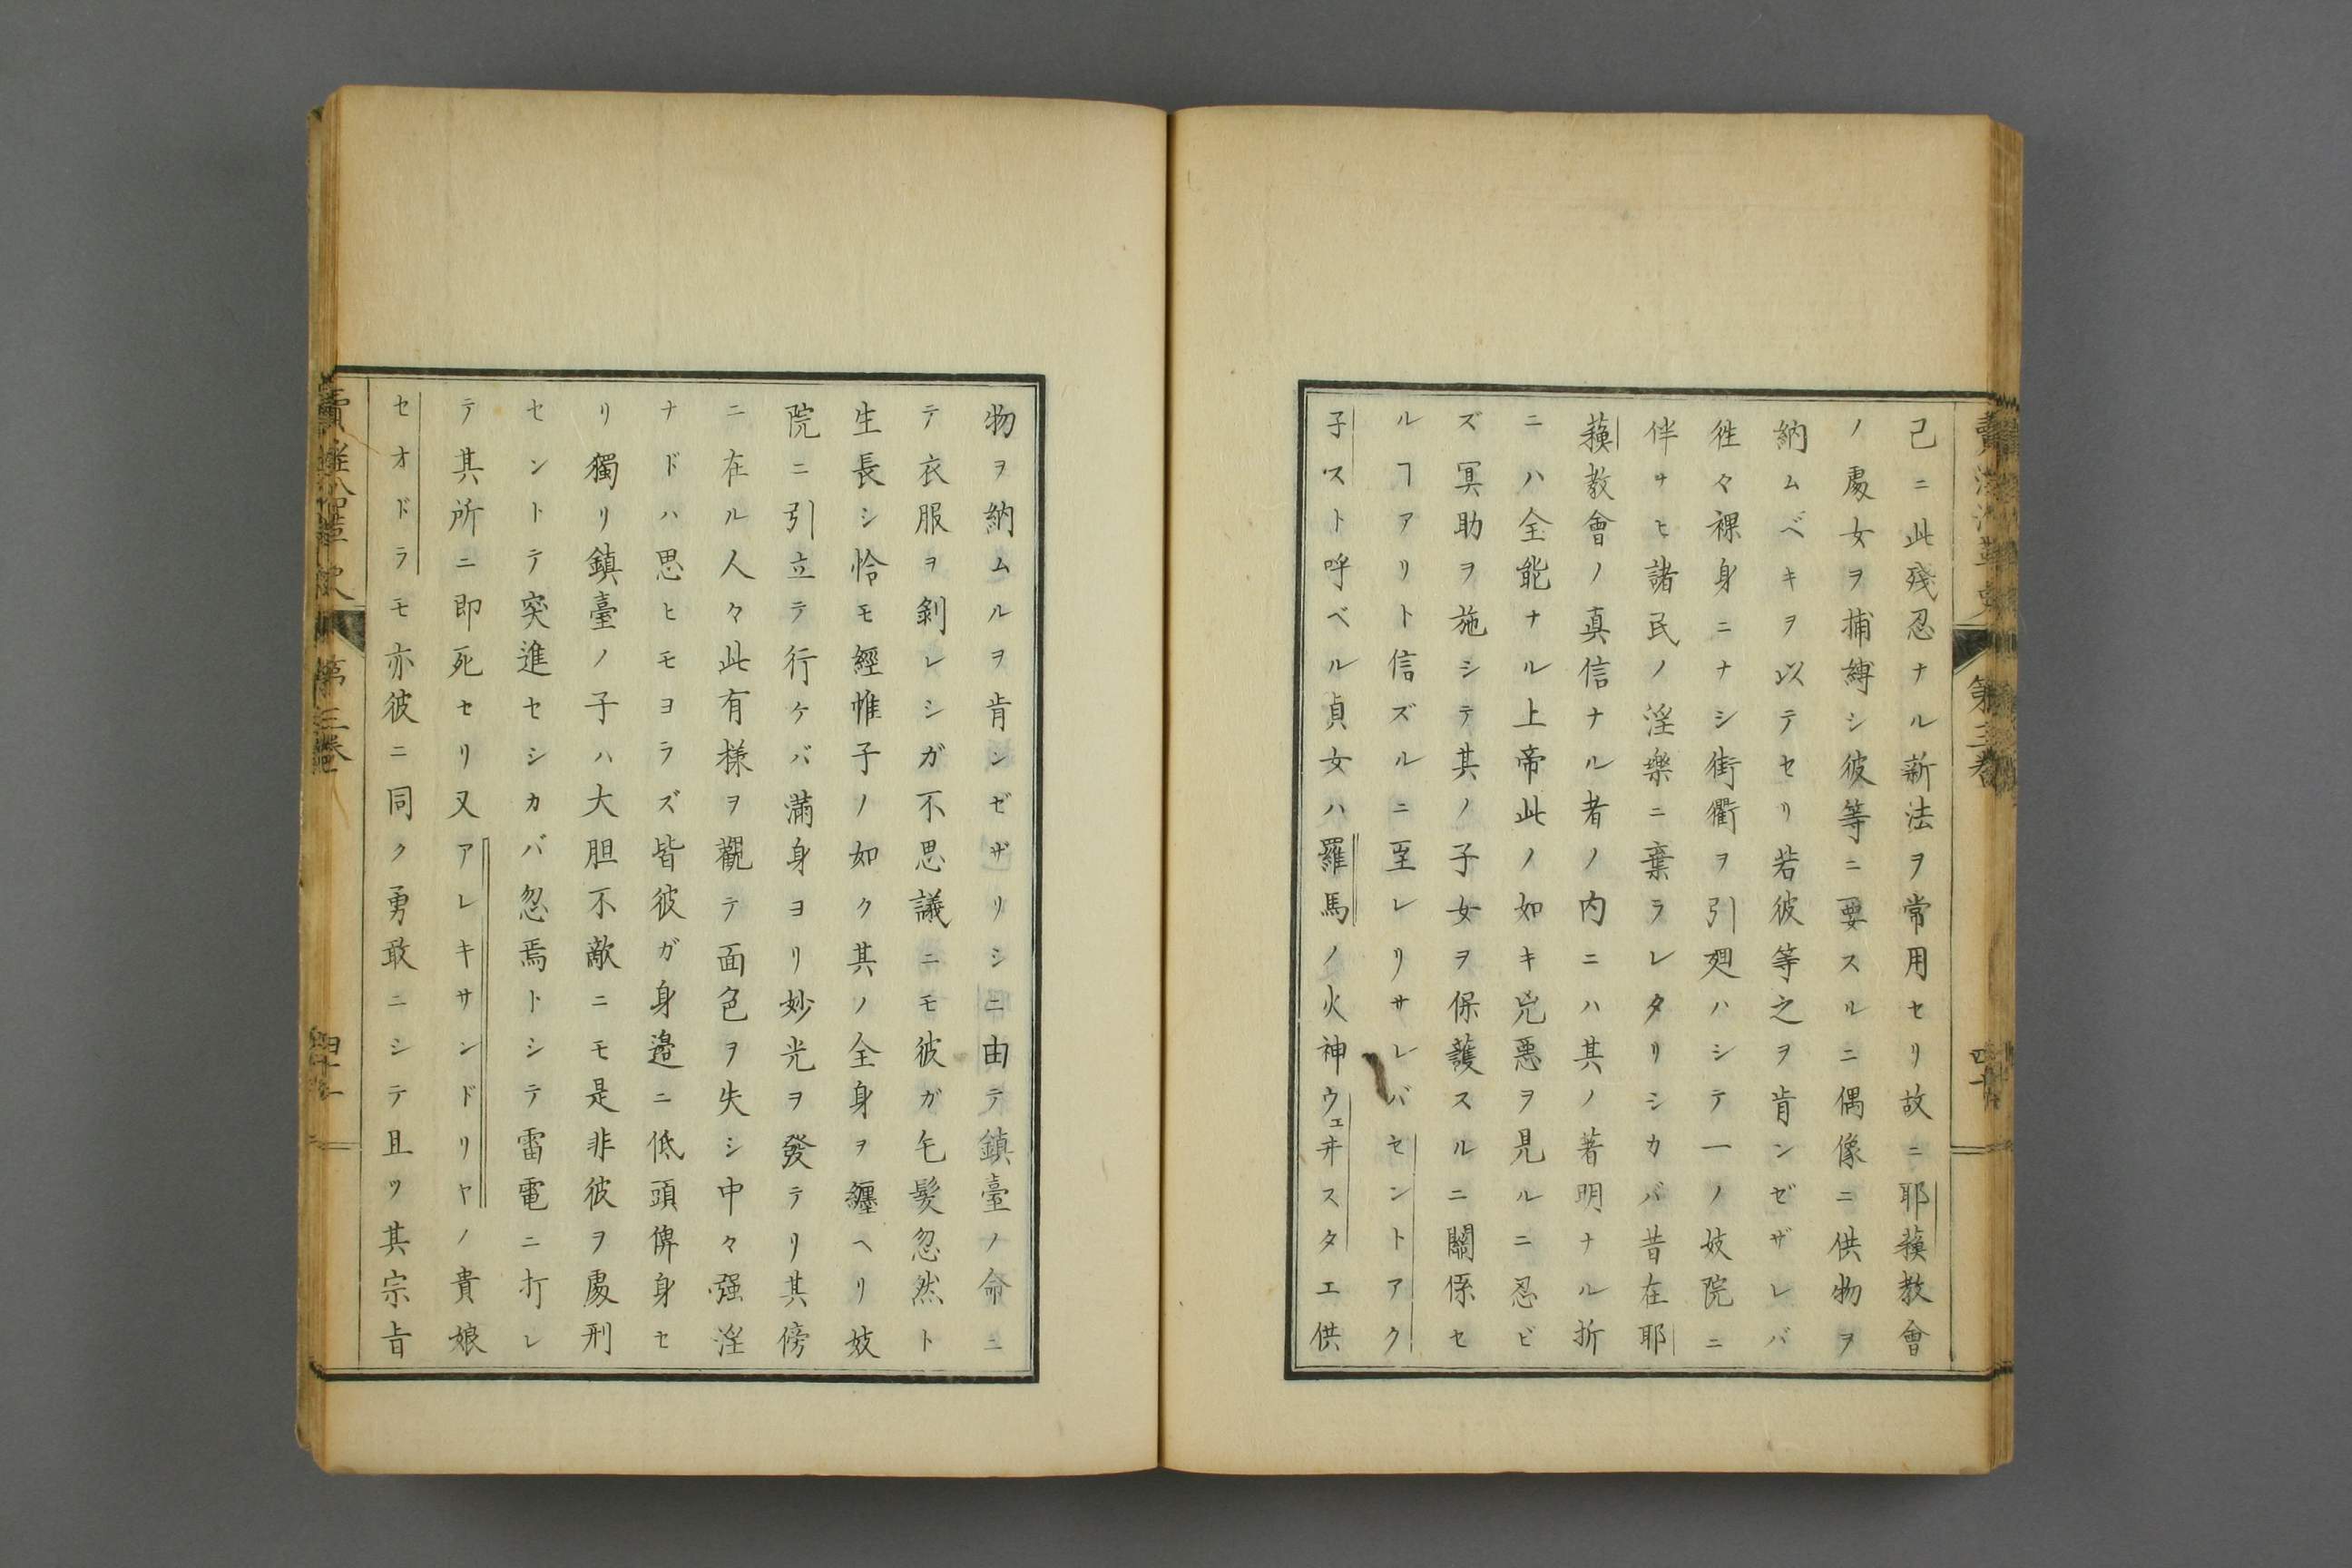 己ニ此殘忍ナル新法ヲ常用セリ故ニ耶蘓教會
ノ處女ヲ捕縛シ彼等ニ要スルニ偶像ニ供物ヲ
納ムベキヲ以テセリ若彼等之ヲ肯ンゼザレバ
徃々裸身ニナシ街衢ヲ引廻ハシテ一ノ妓院ニ
伴サヒ諸民ノ淫樂ニ棄ラレタリシカバ昔在耶
蘓教會ノ真信ナル者ノ内ニハ其ノ著明ナル折
ニハ全能ナル上帝此ノ如キ兇悪ヲ見ルニ忍ビ
ズ冥助ヲ施シテ其ノ子女ヲ保護スルニ關係セ
ルヿアリト信ズルニ至レリサレバセントアク
子スト呼ベル貞女ハ羅馬ノ火神ウェヰスタエ供
第三卷
四十
物ヲ納ムルヲ肯ンゼザリシニ由テ鎮臺ノ命ニ
テ衣服ヲ剝レシガ不思議ニモ彼ガ乇髮忽然ト
生長シ恰モ經帷子ノ如ク其ノ全身ヲ纏ヘリ妓
院ニ引立テ行ケバ滿身ヨリ妙光ヲ發テリ其傍
ニ在ル人々此有様ヲ觀テ面色ヲ失シ中々强淫
ナドハ思ヒモヨラズ皆彼ガ身邉ニ低頭俾身セ
リ獨リ鎮臺ノ子ハ大胆不敵ニモ是非彼ヲ處刑
セントテ突進セシカバ忽焉トシテ雷電ニ打レ
テ其所ニ即死セリ又アレキサンドリヤノ貴娘
セオドラモ亦彼ニ同ク勇敢ニシテ且ツ其宗旨
第三卷